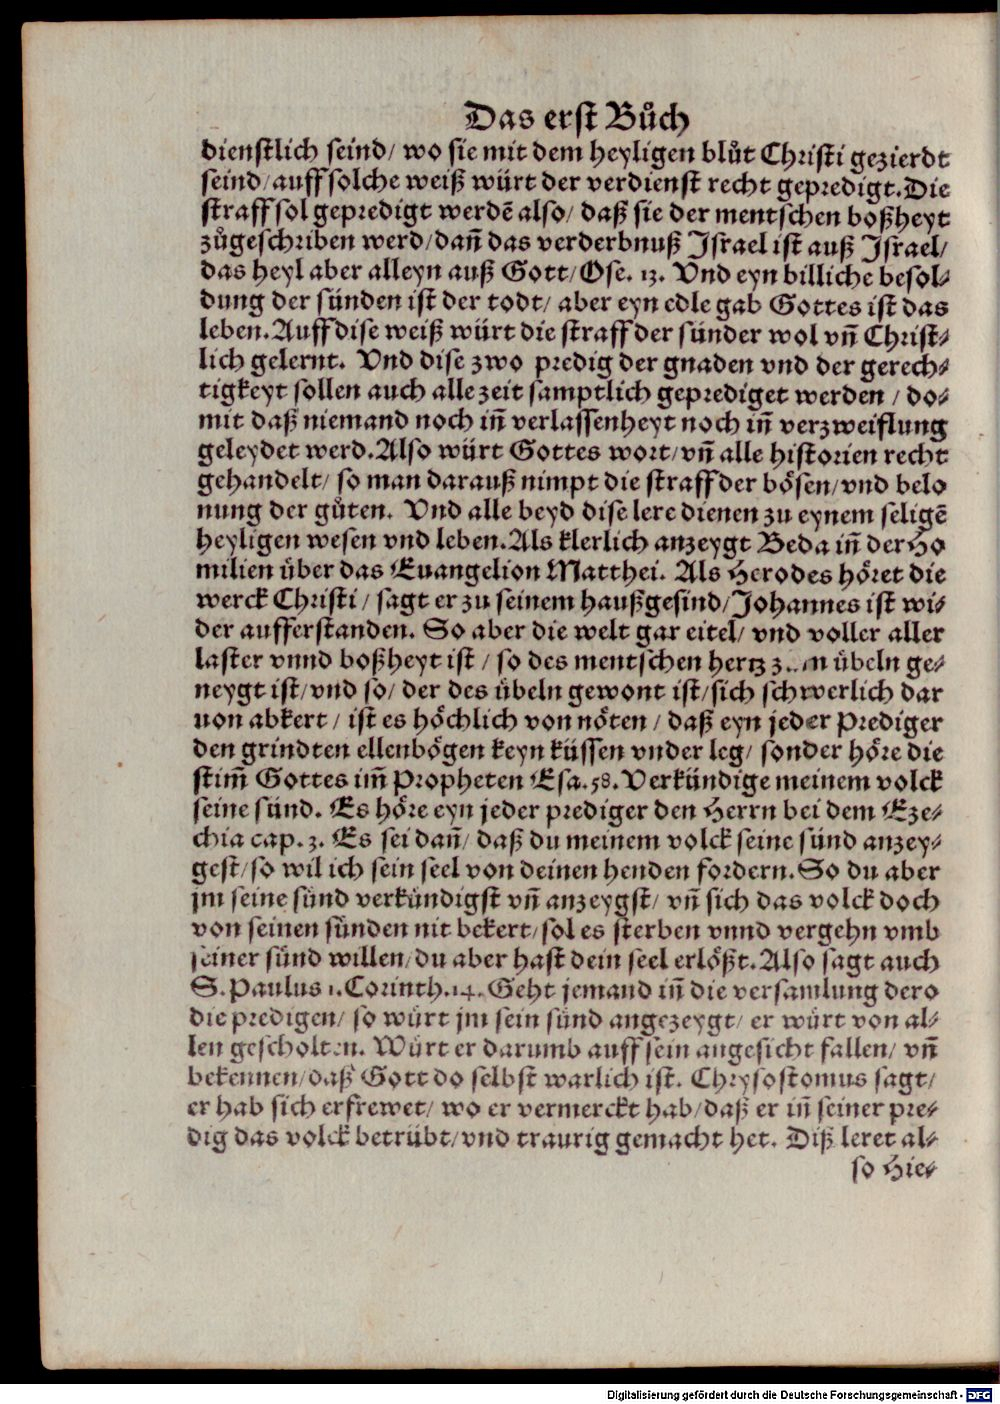 Das erst Bůch
dienstlich seind/ wo sie mit dem heyligen blůt Christi gezierdt
seind/ auff solche weiß würt der verdienst recht gepredigt. Die
straff sol gepredigt werdẽ also/ daß sie der mentschen boßheyt
zůgeschriben werd/ dañ das verderbnuß Israel ist auß Israel/
das heyl aber alleyn auß Gott/ Ose. 13. Vnd eyn billiche besol⸗
dung der sünden ist der todt/ aber eyn edle gab Gottes ist das
leben. Auff dise weiß würt die straff der sünder wol vñ Christ⸗
lich gelernt. Vnd dise zwo predig der gnaden vnd der gerech⸗
tigkeyt sollen auch alle zeit samptlich geprediget werden / do⸗
mit daß niemand noch iñ verlassenheyt noch iñ verzweiflung
geleydet werd. Also würt Gottes wort/ vñ alle historien recht
gehandelt/ so man darauß nimpt die straff der bösen/ vnd belo
nung der gůten. Vnd alle beyd dise lere dienen zu eynem seligẽ
heyligen wesen vnd leben. Als klerlich anzeygt Beda iñ der Ho
milien über das Euangelion Matthei. Als Herodes höret die
werck Christi / sagt er zu seinem haußgesind/ Johannes ist wi⸗
der aufferstanden. So aber die welt gar eitel/ vnd voller aller
laster vnnd boßheyt ist / so des mentschen hertz übeln ge⸗
neygt ist/ vnd so/ der des übeln gewont ist/ sich schwerlich dar
uon abkert / ist es höchlich von nöten / daß eyn jeder Prediger
den grindten ellenbögen keyn küssen vnder leg/ sonder höre die
stim̃ Gottes im̃ Propheten Esa. 58. Verkündige meinem volck
seine sünd. Es höre eyn jeder prediger den Herrn bei dem Eze⸗
chia cap. 3. Es sei dañ/ daß du meinem volck seine sünd anzey⸗
gest/ so wil ich sein seel von deinen henden fordern. So du aber
jm seine sünd verkündigst vñ anzeygst/ vñ sich das volck doch
von seinen sünden nit bekert/ sol es sterben vnnd vergehn vmb
seiner sünd willen/ du aber hast dein seel erlößt. Also sagt auch
S. Paulus 1. Corinth. 14. Geht jemand iñ die versamlung dero
die predigen/ so würt jm sein sünd angezeygt/ er würt von al⸗
len gescholten. Würt er darumb auff sein angesicht fallen/ vñ
bekennen/ daß Gott do selbst warlich ist. Chrysostomus sagt/
er hab sich erfrewet/ wo er vermerckt hab/ daß er iñ seiner pre⸗
dig das volck betrübt/ vnd traurig gemacht het. Diß leret al⸗
so Hie⸗
Digitalisierung gefördert durch die Deutsche Forschungsgemeinschaft - DFG